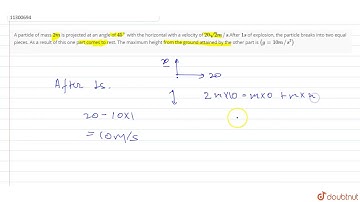 11300694
A particle of mass 2m is projected at an angle of 45° with the horizontal with a velocity of 20√2m/s After 1s of explosion, the particle breaks into two equal
pieces. As a result of this one part comes to rest. The maximum height from the ground attained by the other part is (g = 10m/s²)
After 1s.
20
2m×10 = m×0 + m×v
20 - 10×1
= 10m/s
doubtnut